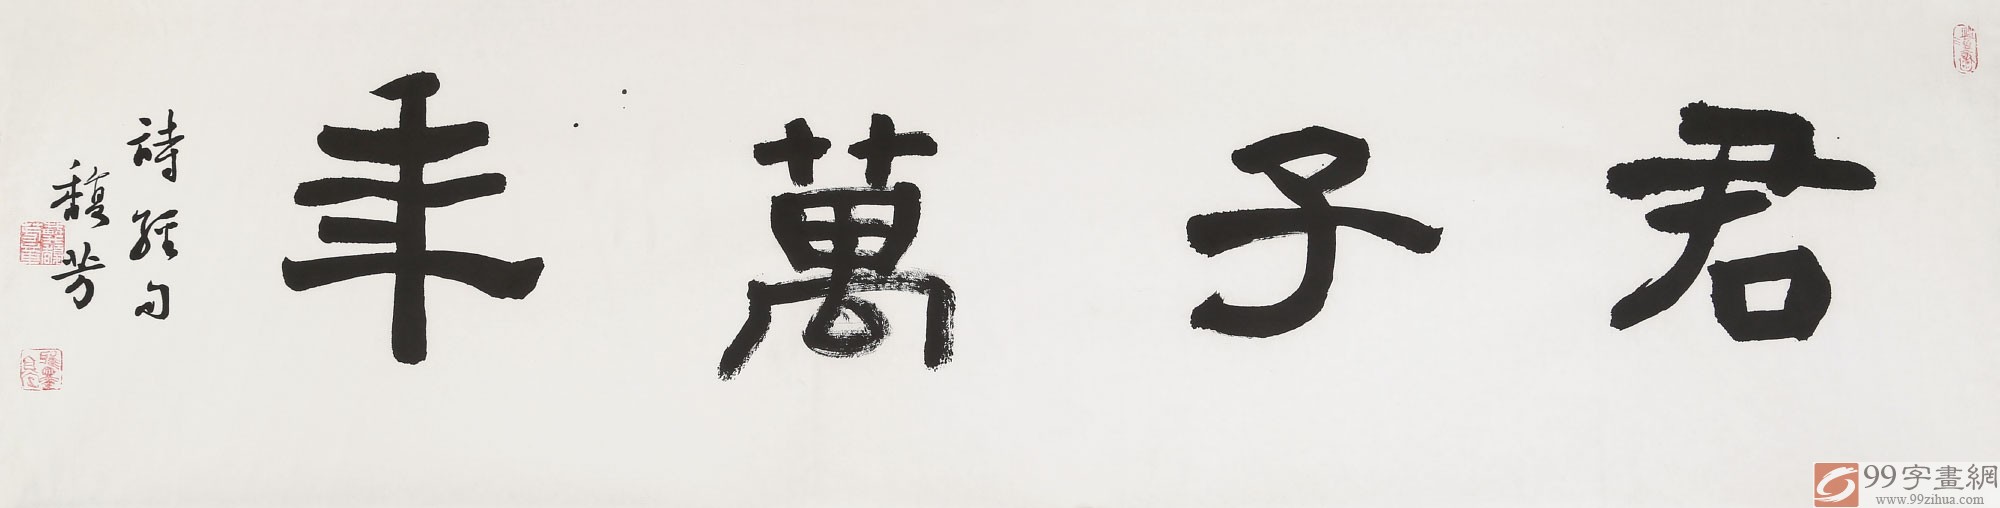 君子萬年
詩經句
馥芳
99字畫網
www.99zihua.com